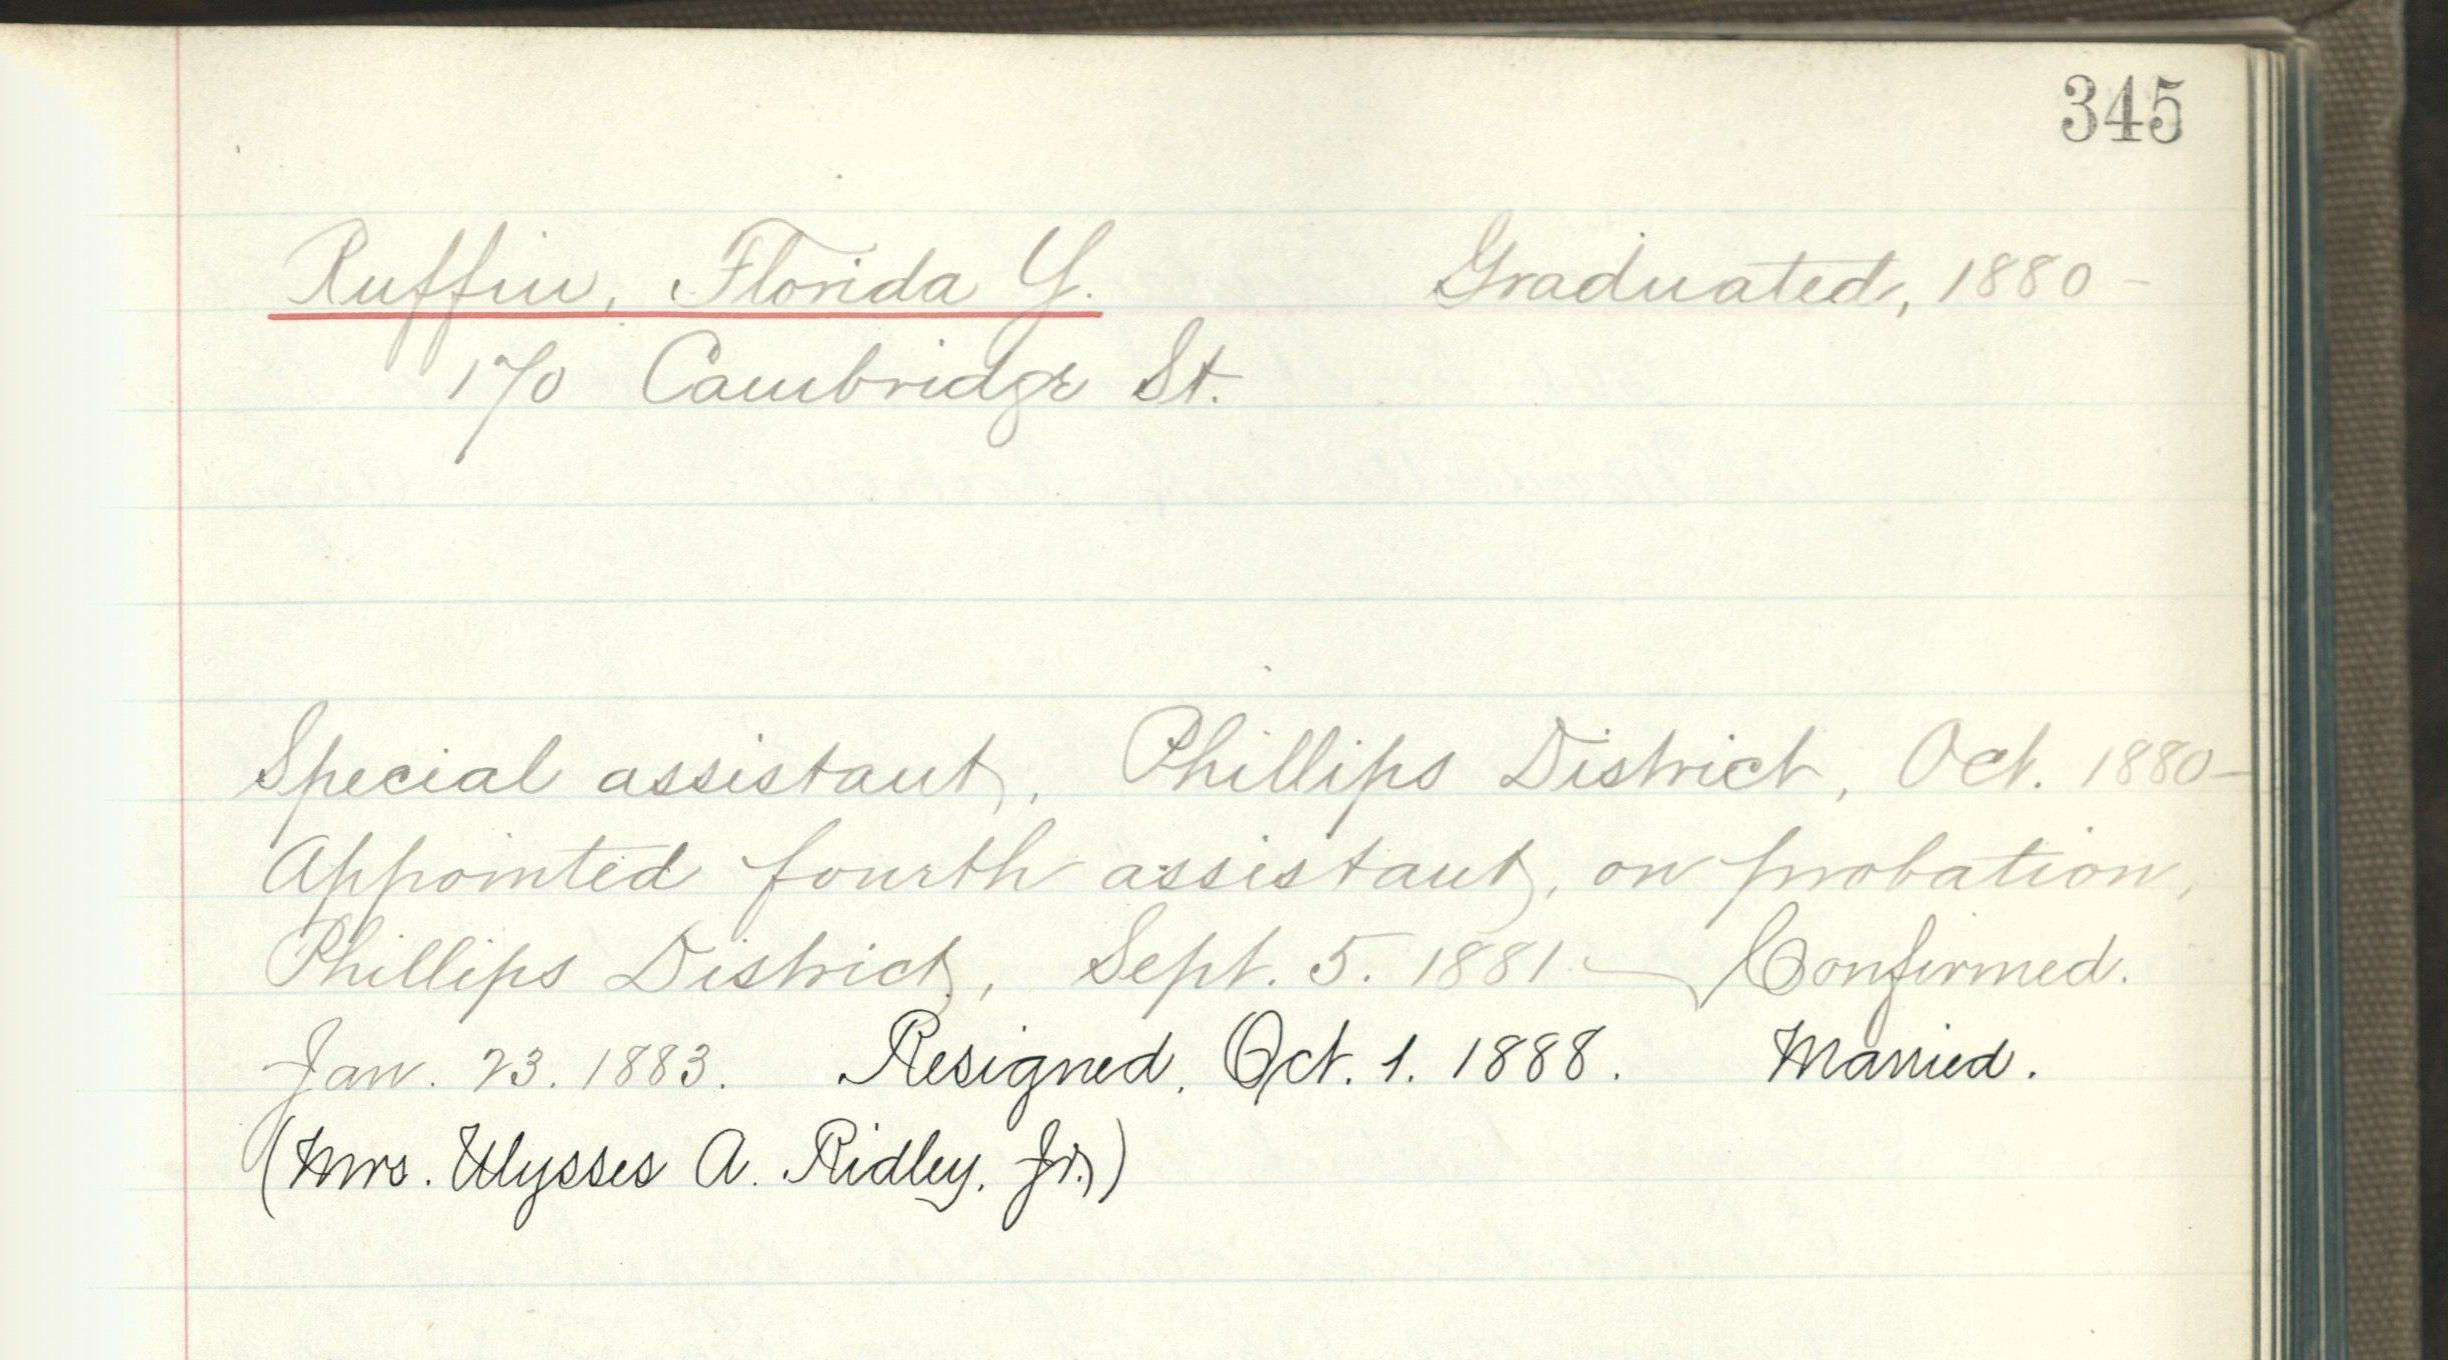 345
Ruffin, Florida Y. Graduated, 1880-
170 Cambridge St.
Special assistant, Phillips District, Oct. 1880-
Appointed fourth assistant, on probation,
Phillips District, Sept. 5. 1881 - Confirmed.
Jan. 23. 1883. Resigned, Oct. 1. 1888. Married.
(Mrs. Ulysses A. Ridley, Jr.)